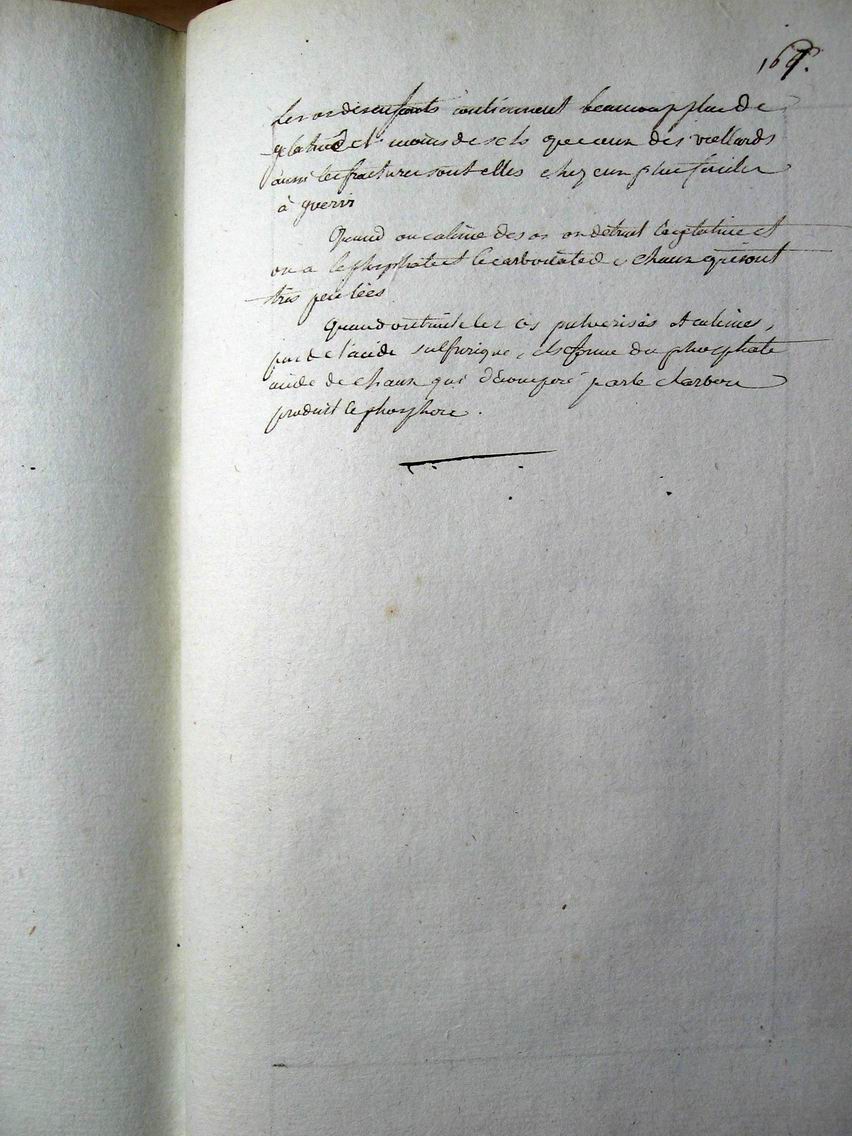 167.
Les os des enfants contiennent beaucoup plus de
gelatine et moins de sels que ceux des viellards
aussi les fractures sont elles chez eux plus faciles
à guerir
Quand on calcine des os on détruit la gelatine et
on a le phosphate et le carbonate de chaux qui sont
très peu liés
Quand on traite les os pulverisés et calcines,
par de l'acide sulfurique, il se forme du phosphate
acide de chaux qui décomposé par le charbon
produit le phosphore.